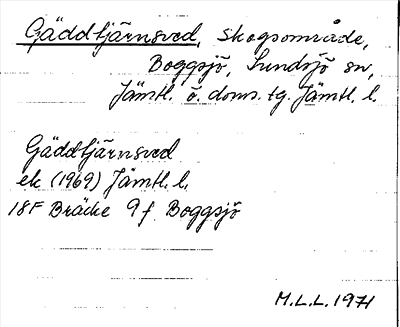 Gäddtjärnsved, skogsområde,
Boggsjö, Sundsjö sn,
Jämtl. ö. doms. tg. Jämtl. l.
Gäddtjärnsved
ek (1969) Jämtl. l.
18F Bräcke 9f Boggsjö
M.L.L. 1971